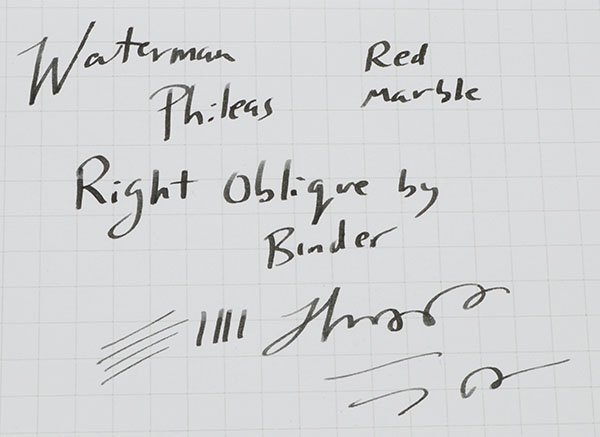 Waterman
Phileas
Red
Marble
Right Oblique by
Binder